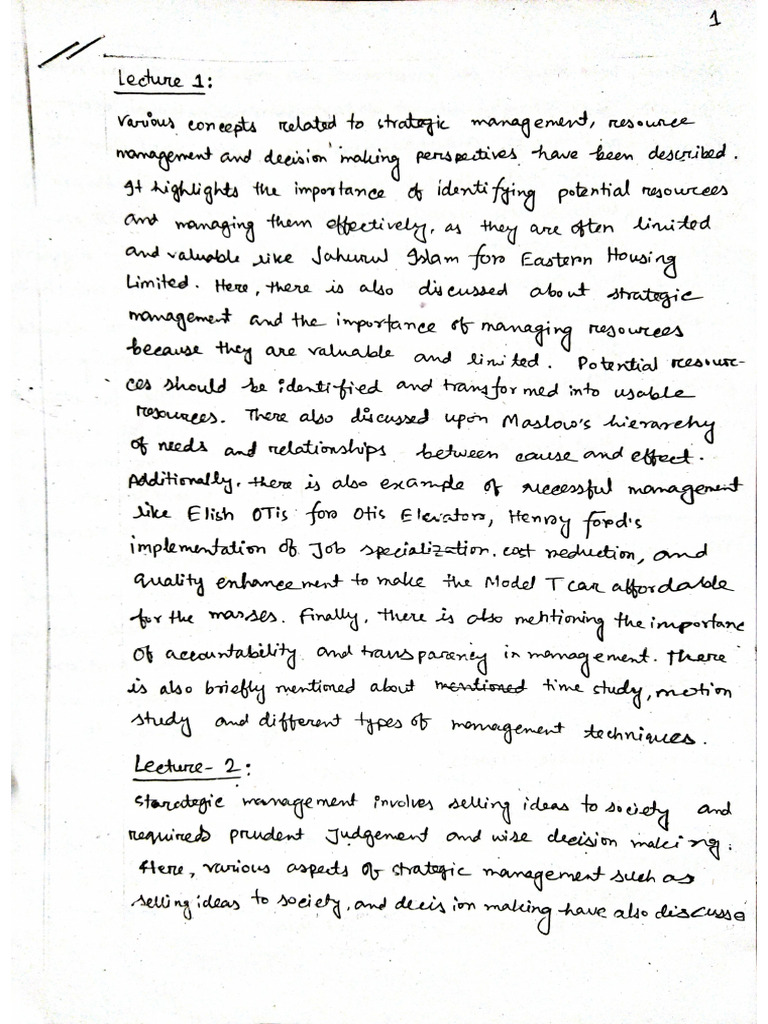 1
Lecture 1:
Various concepts related to strategic management, resource
management and decision making perspectives have been described.
It highlights the importance of identifying potential resources
and managing them effectively, as they are often limited
and valuable like Jahurul Islam for Eastern Housing
Limited. Here, there is also discussed about strategic
management and the importance of managing resources
because they are valuable and limited. Potential resour-
ces should be identified and transformed into usable
resources. There also discussed upon Maslow's hierarchy
of needs and relationships between cause and effect.
Additionally, there is also example of successful management
like Elish OTis for Otis Elevators, Henry ford's
implementation of Job specialization, cost reduction, and
quality enhancement to make the Model T car affordable
for the masses. Finally, there is also mentioning the importanc
of accountability and transparency in management. There
is also briefly mentioned about mentioned time study, motion
study and different types of management techniques.
Lecture- 2:
Starategic management involves selling ideas to society and
requireds prudent Judgement and wise decision making.
Here, various aspects of strategic management such as
selling ideas to society, and decision making have also discusse